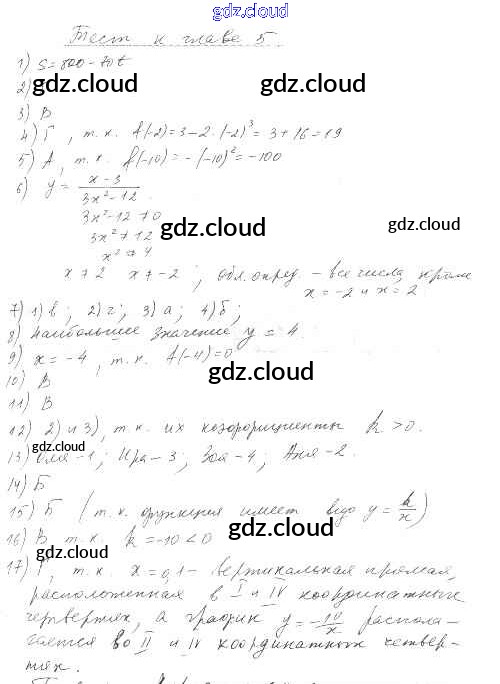 gdz.cloud
Тест к главе 5
1) S = 800 - 70t
gdz.cloud gdz.cloud
2)
3) В
4) Г, т.к. f(-2) = 3 - 2·(-2)³ = 3 + 16 = 19
5) А, т.к. f(-10) = -(-10)² = -100
6) y = x-3 / 3x²-12
3x² - 12 ≠ 0
gdz.cloud gdz.cloud
3x² ≠ 12
x² ≠ 4
x ≠ 2 x ≠ -2; обл. опред. - все числа, кроме
x = -2 и x = 2.
7) 1) в; 2) г; 3) а; 4) б;
8) наибольшее значение y = 4.
9) x = -4, т.к. f(-4) = 0
gdz.cloud
10) В
11) В
12) 2) и 3), т.к. их коэффициенты k > 0.
gdz.cloud
13) Оля - 1; Ира - 3; Зоя - 4; Аня - 2.
14) Б
15) Б (т.к. функция имеет вид y = k/x)
gdz.cloud
16) В, т.к. k = -10 < 0
gdz.cloud
17) Г, т.к. x = 0,1 - вертикальная прямая,
расположенная в I и IV координатных
gdz.cloud
четвертях, а график y = -10/x распола-
гается во II и IV координатных четвер-
тях.